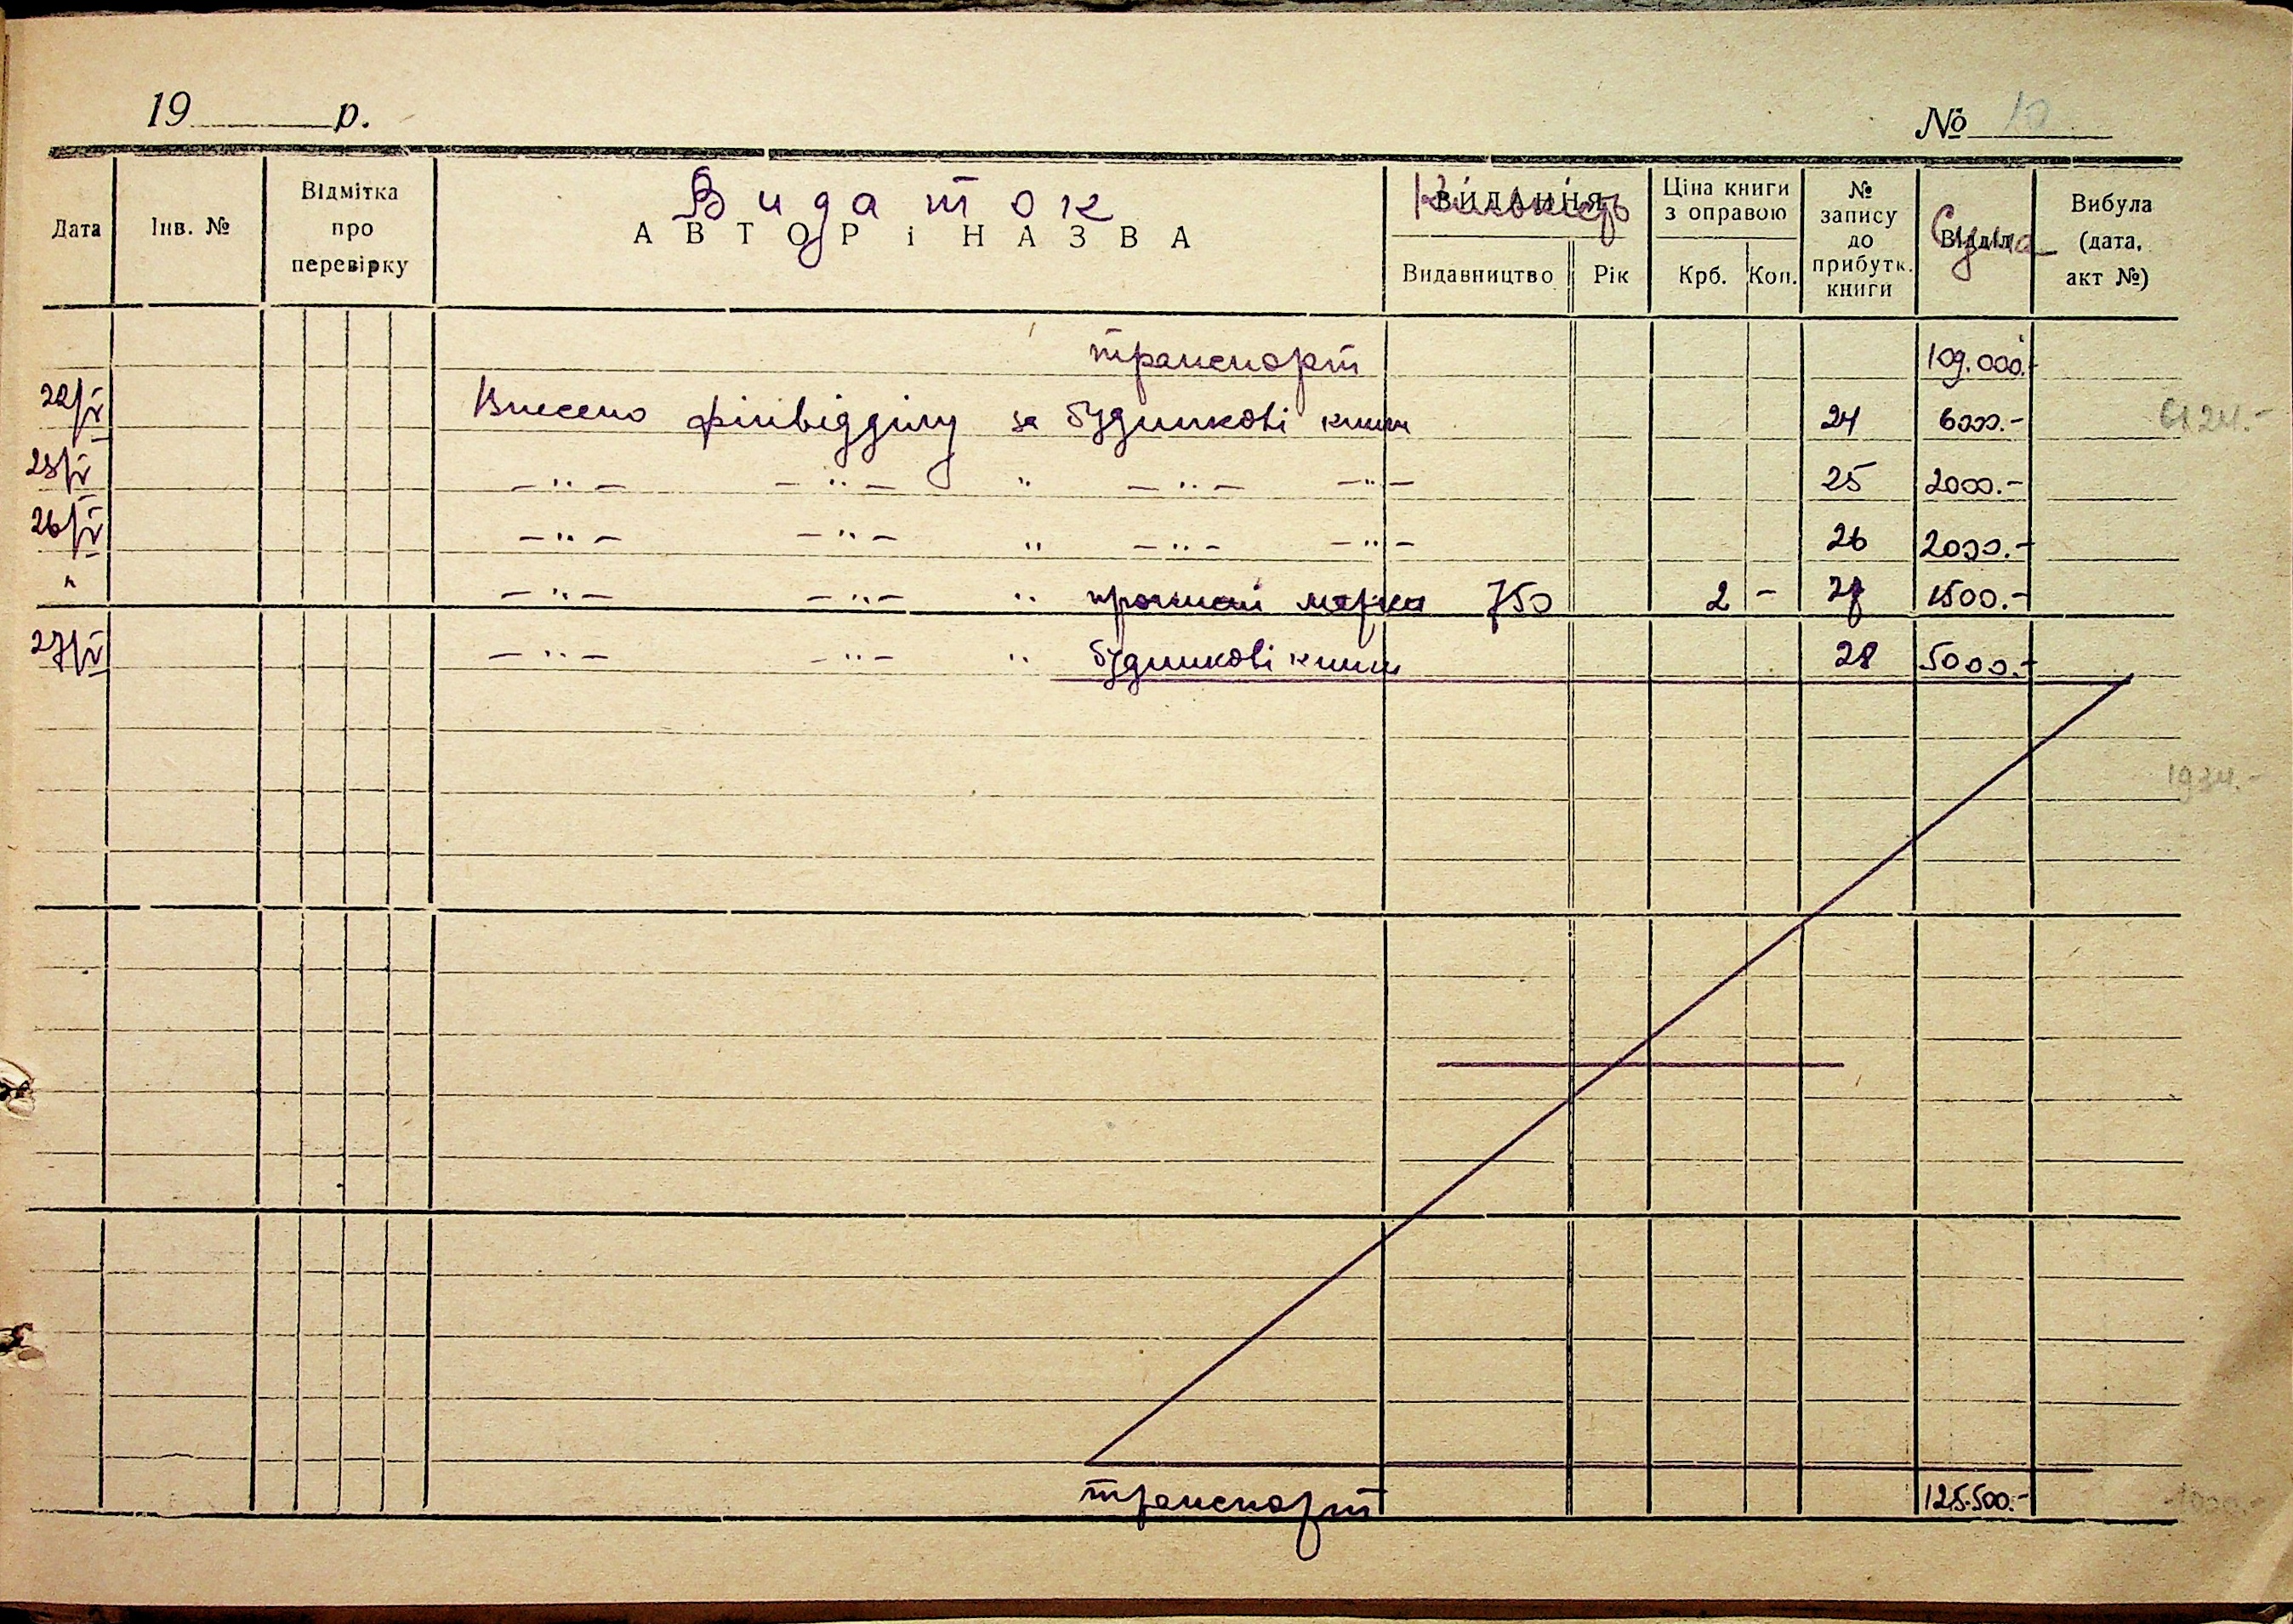 19 р.
№ 10
Дата
Інв. №
Відмітка про перевірку
Видаток
АВТОР і НАЗВА
Кількість
ВИДАННЯ
Видавництво
Рік
Ціна книги з оправою
Крб.
Коп.
№ запису до прибутк. книги
Сума
Відділ
Вибула (дата, акт №)
транспорт 109.000.-
22/IV Внесено фінвідділу за будинкові книги 24 6000.-
23/IV -"- -"- " -"- -"- 25 2000.-
26/IV -"- -"- " -"- -"- 26 2000.-
" -"- -"- " марки 750 2 - 27 1500.-
27/IV -"- -"- " будинкові книги 28 5000.-
транспорт 125.500.-